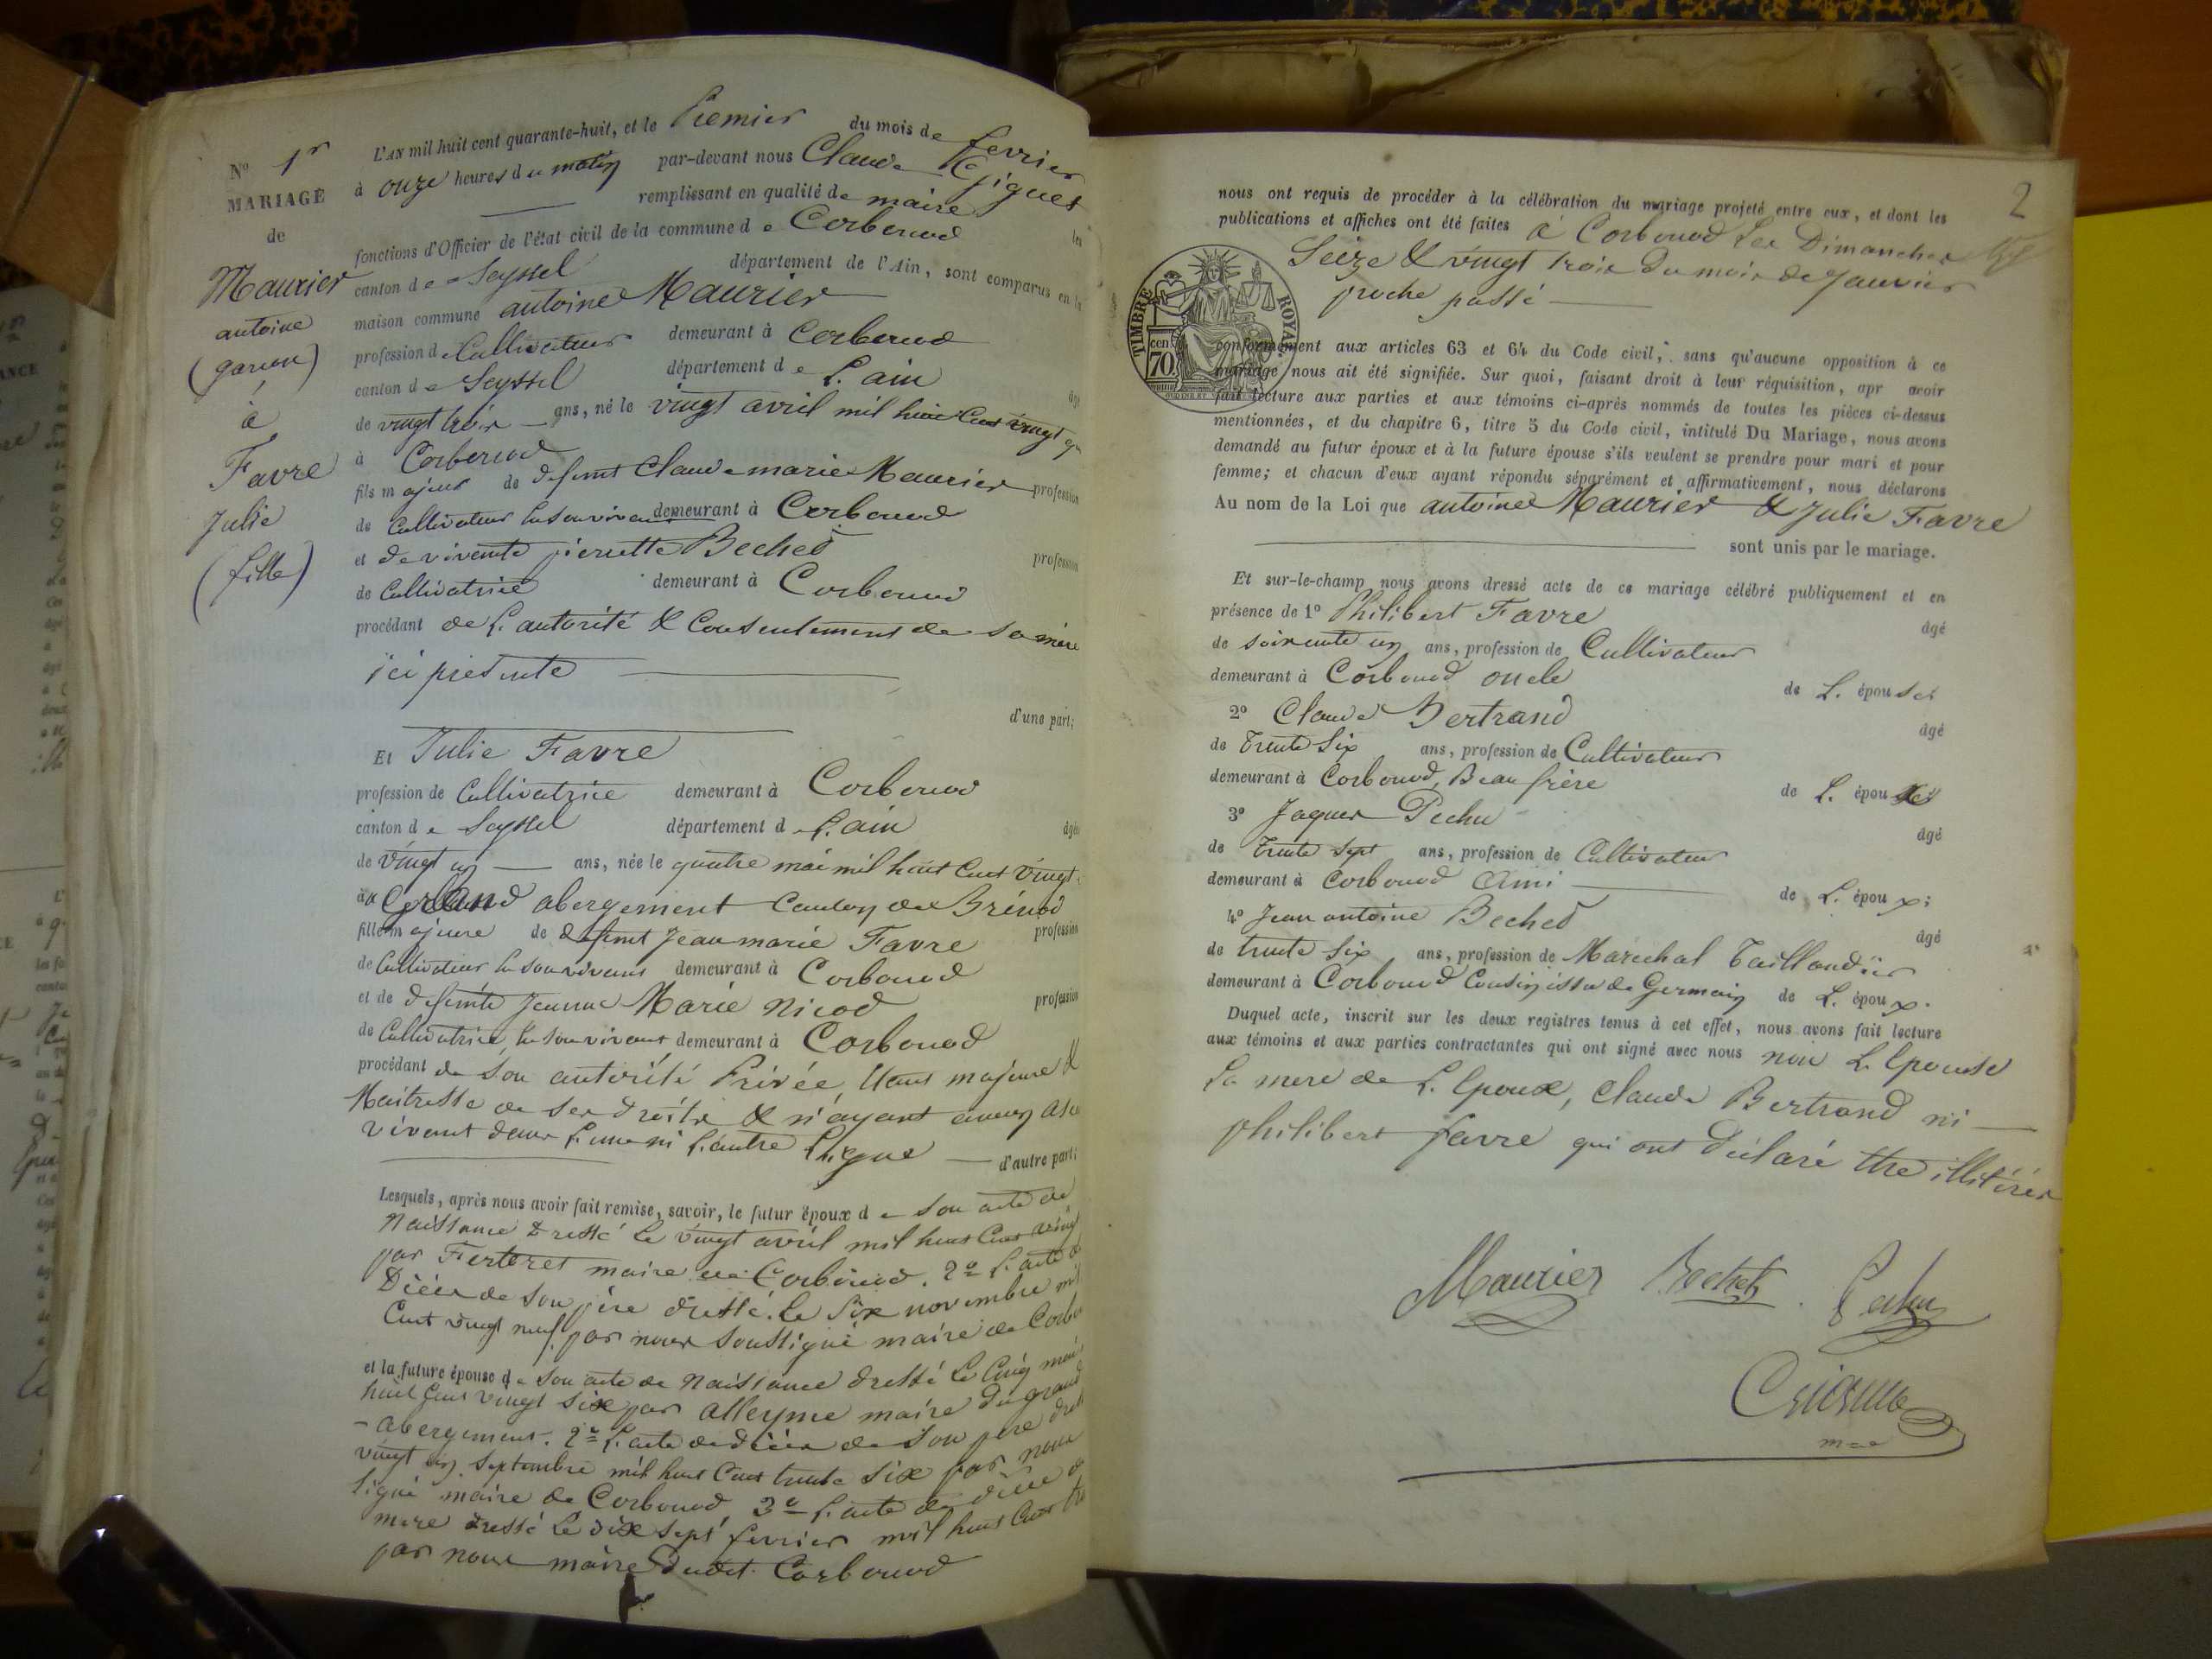 N° 1er
MARIAGE
de
Maurier
antoine
(garcon)
à
Favre
Julie
(fille)
L'AN mil huit cent quarante-huit, et le Premier du mois de fevrier
à onze heures du matin par-devant nous Claude
remplissant en qualité de maire les
fonctions d'Officier de l'état civil de la commune de Corbonod
canton de Seyssel département de l'Ain, sont comparus en la
maison commune antoine Maurier
profession de Cultivateur demeurant à Corbonod
canton de Seyssel département de L'ain agé
de vingt trois ans, né le vingt avril mil huit Cent vingt
à Corbonod
fils majeur de defunt Claude marie Maurier profession
de Cultivateur lui souvivant demeurant à Corbonod
et de vivente pierrette Bechet profession
de Cultivatrice demeurant à Corbonod
procédant de L'autorité & Consentement de sa mère
ici presente
d'une part;
Et Julie Favre
profession de Cultivatrice demeurant à Corbonod
canton de Seyssel département de L'ain âgée
de vingt un ans, née le quatre mai mil huit Cent vingt
au Grand abergement Canton de Brénod
fille majeure de defunt Jean marie Favre profession
de Cultivateur lui souvivant demeurant à Corbonod
et de defunte Jeanne Marie Nicod profession
de Cultivatrice lui souvivant demeurant à Corbonod
procédant de son autorité Privée, étant majeure &
Maitresse de ses droits & n'ayant aucun
vivant dans L'une ni L'autre Ligne d'autre part;
Lesquels, après nous avoir fait remise, savoir, le futur époux de son acte de
Naissance dressé Le vingt avril mil huit Cent vingt
par Ferteret maire de Corbonod. 2° L'acte de
Décès de son père dressé Le Six novembre mil
Cent vingt neuf par nous Soussigné maire de
et la future épouse de son acte de Naissance dressé Le Cinq mai
huit Cent vingt Six par Alleyme maire du grand
- abergement. 2° L'acte de décès de son père
vingt un Septembre mil huit Cent trente Six par nous
signé maire de Corbonod, 3° L'acte de décès de
mere dressé Le dix sept fevrier mil huit Cent
par nous maire dudit Corbonod
2
nous ont requis de procéder à la célébration du mariage projeté entre eux, et dont les
publications et affiches ont été faites à Corbonod Les Dimanches
Seize & vingt trois du mois de Janvier
proche passé
TIMBRE ROYAL
cen 70
conformément aux articles 63 et 64 du Code civil, sans qu'aucune opposition à ce
mariage nous ait été signifiée. Sur quoi, faisant droit à leur réquisition, apr avoir
fait lecture aux parties et aux témoins ci-après nommés de toutes les pièces ci-dessus
mentionnées, et du chapitre 6, titre 5 du Code civil, intitulé Du Mariage, nous avons
demandé au futur époux et à la future épouse s'ils veulent se prendre pour mari et pour
femme; et chacun d'eux ayant répondu séparément et affirmativement, nous déclarons
Au nom de la Loi que antoine Maurier & Julie Favre
sont unis par le mariage.
Et sur-le-champ nous avons dressé acte de ce mariage célébré publiquement et en
présence de 1° Philibert Favre âgé
de soixante un ans, profession de Cultivateur
demeurant à Corbonod oncle de L'épouse;
2° Claude Bertrand âgé
de Trente Six ans, profession de Cultivateur
demeurant à Corbonod, Beau frère de L'épou
3° Jaques Pechu âgé
de Trente Sept ans, profession de Cultivateur
demeurant à Corbonod Ami de L'époux;
4° Jean antoine Bechet âgé
de trente Six ans, profession de Marechal Taillandier
demeurant à Corbonod Cousin issu de Germain de L'époux.
Duquel acte, inscrit sur les deux registres tenus à cet effet, nous avons fait lecture
aux témoins et aux parties contractantes qui ont signé avec nous non L'Epouse
La mere de L'Epoux, Claude Bertrand ni
philibert favre qui ont déclaré être illitérés
Maurier Bechet Pechu